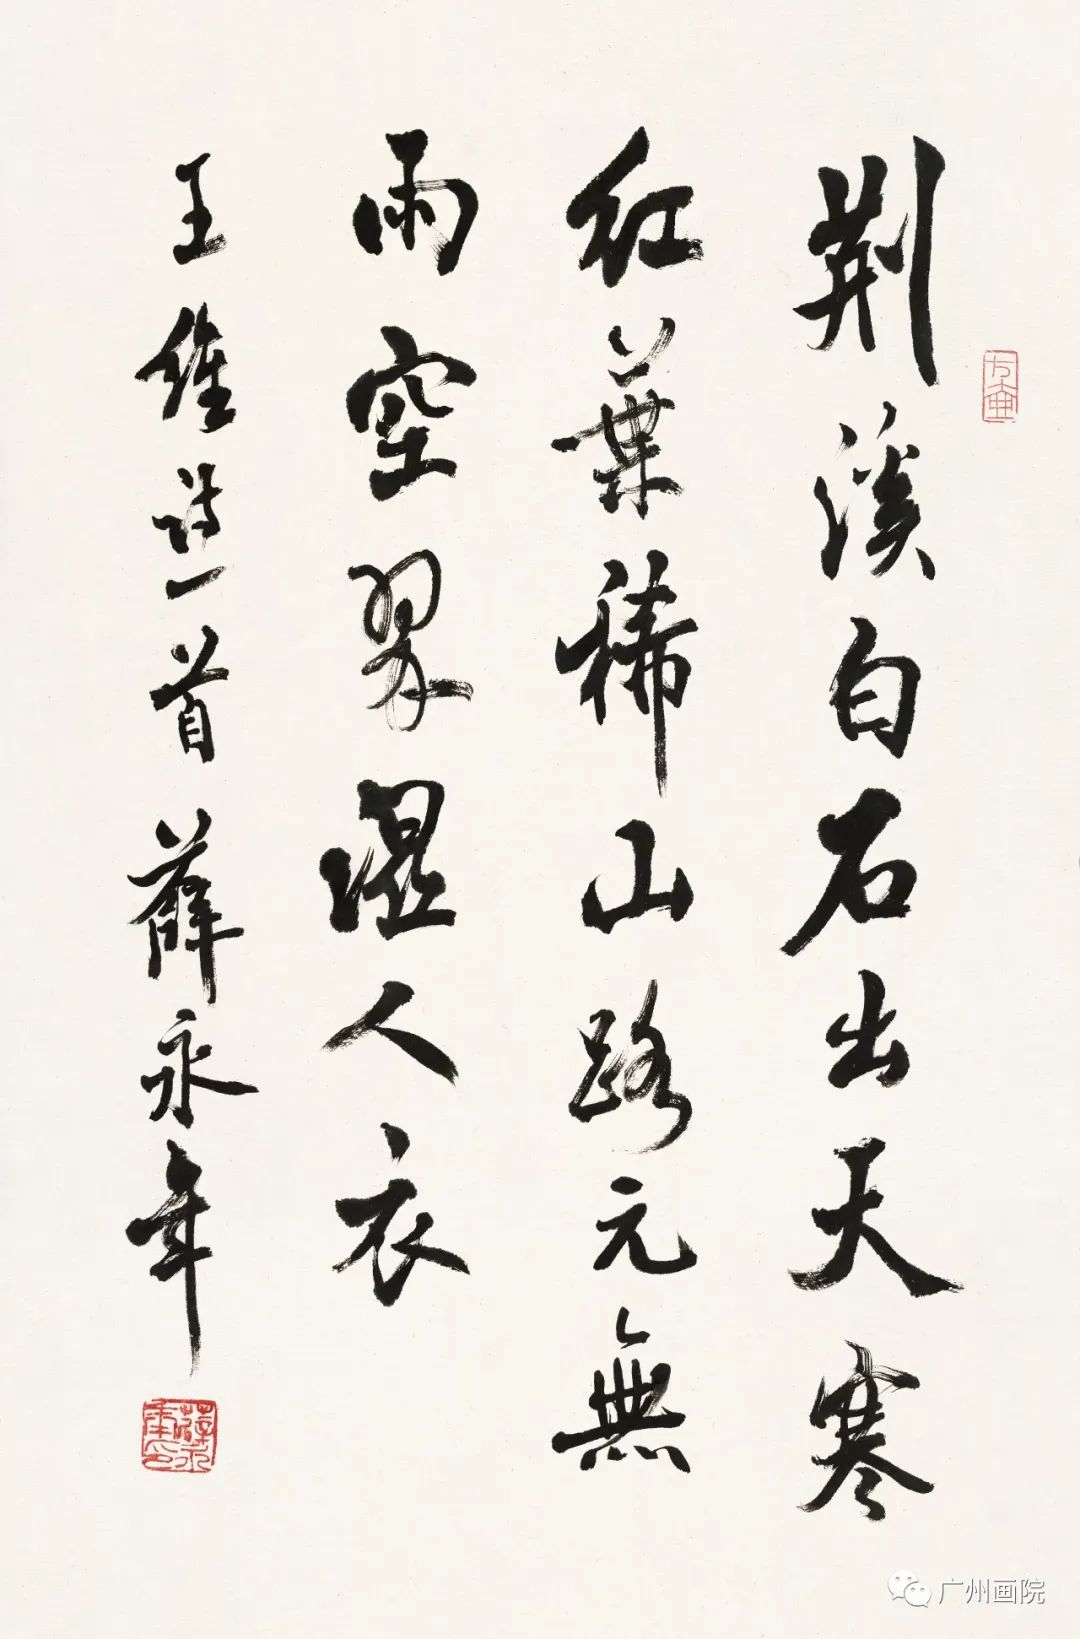 荆溪白石出天寒
红葉稀山路元無
雨空翠濕人衣
王维诗一首 薛永年
薛永年印
广州画院